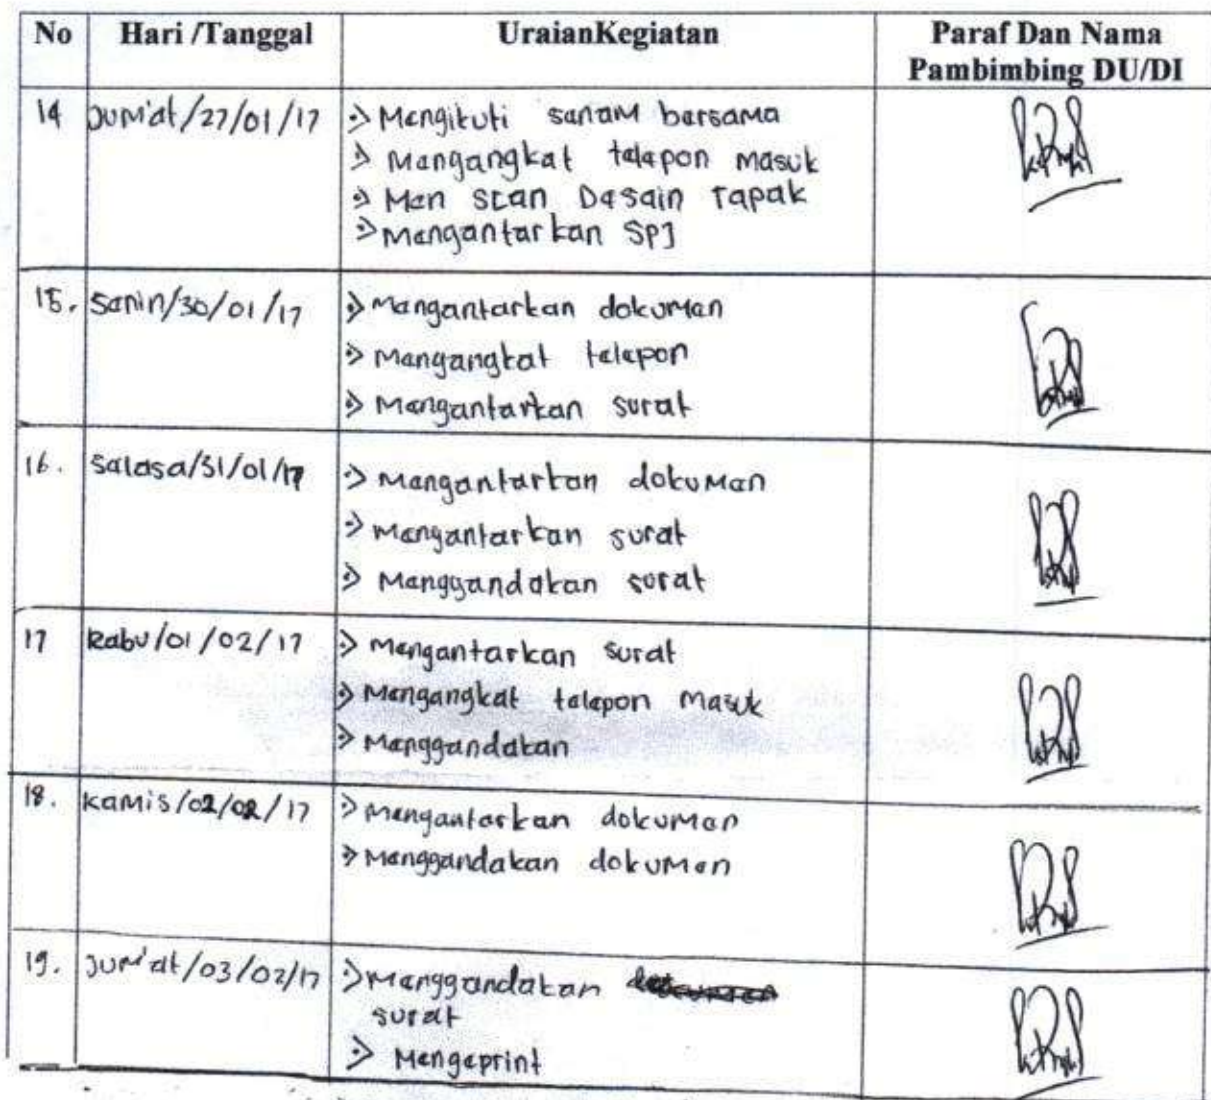 No Hari /Tanggal UraianKegiatan Paraf Dan Nama
Pambimbing DU/DI
14 Jum'at/27/01/17 Mengikuti senam bersama
Mengangkat telepon masuk
Men scan Desain Tapak
Mengantarkan SPJ
15. Senin/30/01/17 Mengantarkan dokumen
Mengangkat telepon
Mengantarkan surat
16. Selasa/31/01/17 Mengantarkan dokumen
Mengantarkan surat
Menggandakan surat
17 Rabu/01/02/17 Mengantarkan surat
Mengangkat telepon masuk
Menggandakan
18. Kamis/02/02/17 Mengantarkan dokumen
Menggandakan dokumen
19. Jum'at/03/02/17 Menggandakan
surat
Mengeprint